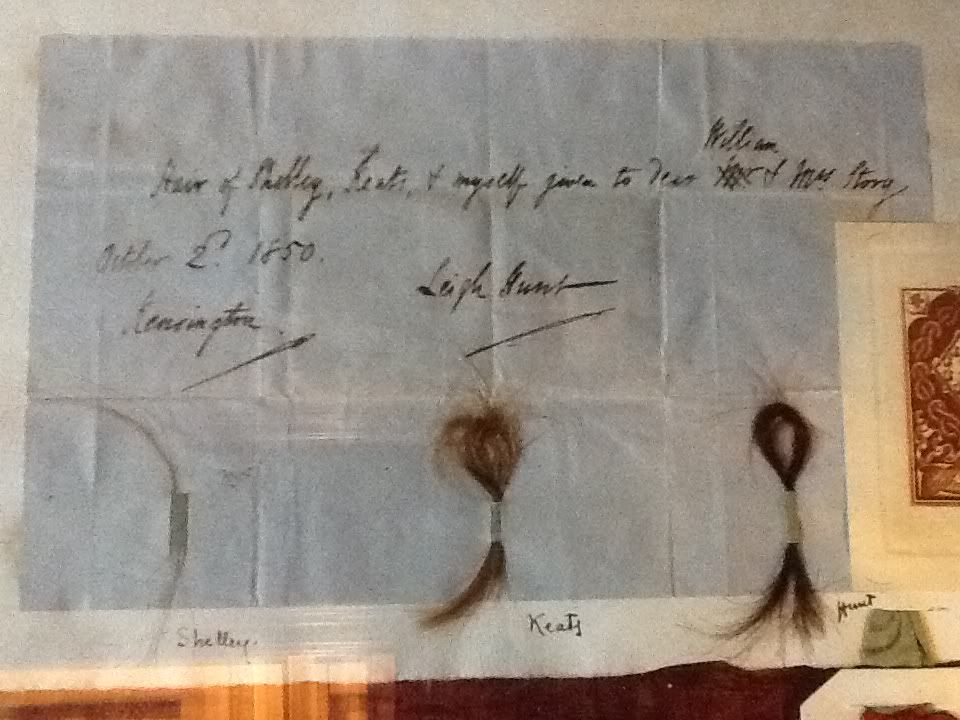 William
Hair of Shelley, Keats, & myself, given to dear Mr & Mrs Story,
October 2d. 1850.
Leigh Hunt
Kensington.
Shelley.
Keats
Hunt